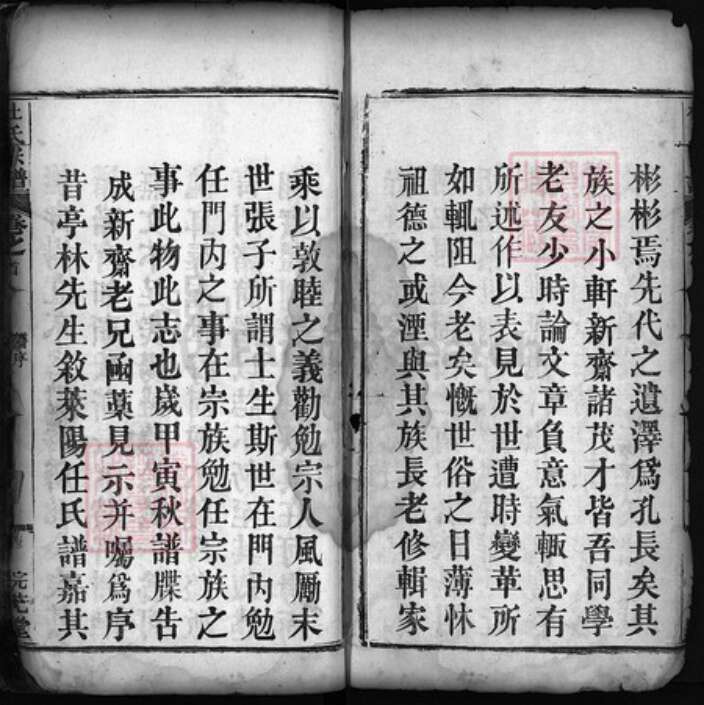 彬彬焉先代之遺澤爲孔長矣其
族之小軒新齋諸茂才皆吾同學
老友少時論文章負意氣輙思有
所述作以表見於世遭時變革所
如輒阻今老矣慨世俗之日薄怵
祖德之或湮與其族長老修輯家
乘以敦睦之義勸勉宗人風厲末
世張子所謂士生斯世在門內勉
任門內之事在宗族勉任宗族之
事此物此志也歲甲寅秋譜牒告
成新齋老兄函藁見示并囑爲序
昔亭林先生敘萊陽任氏譜嘉其
杜氏宗譜
卷之首